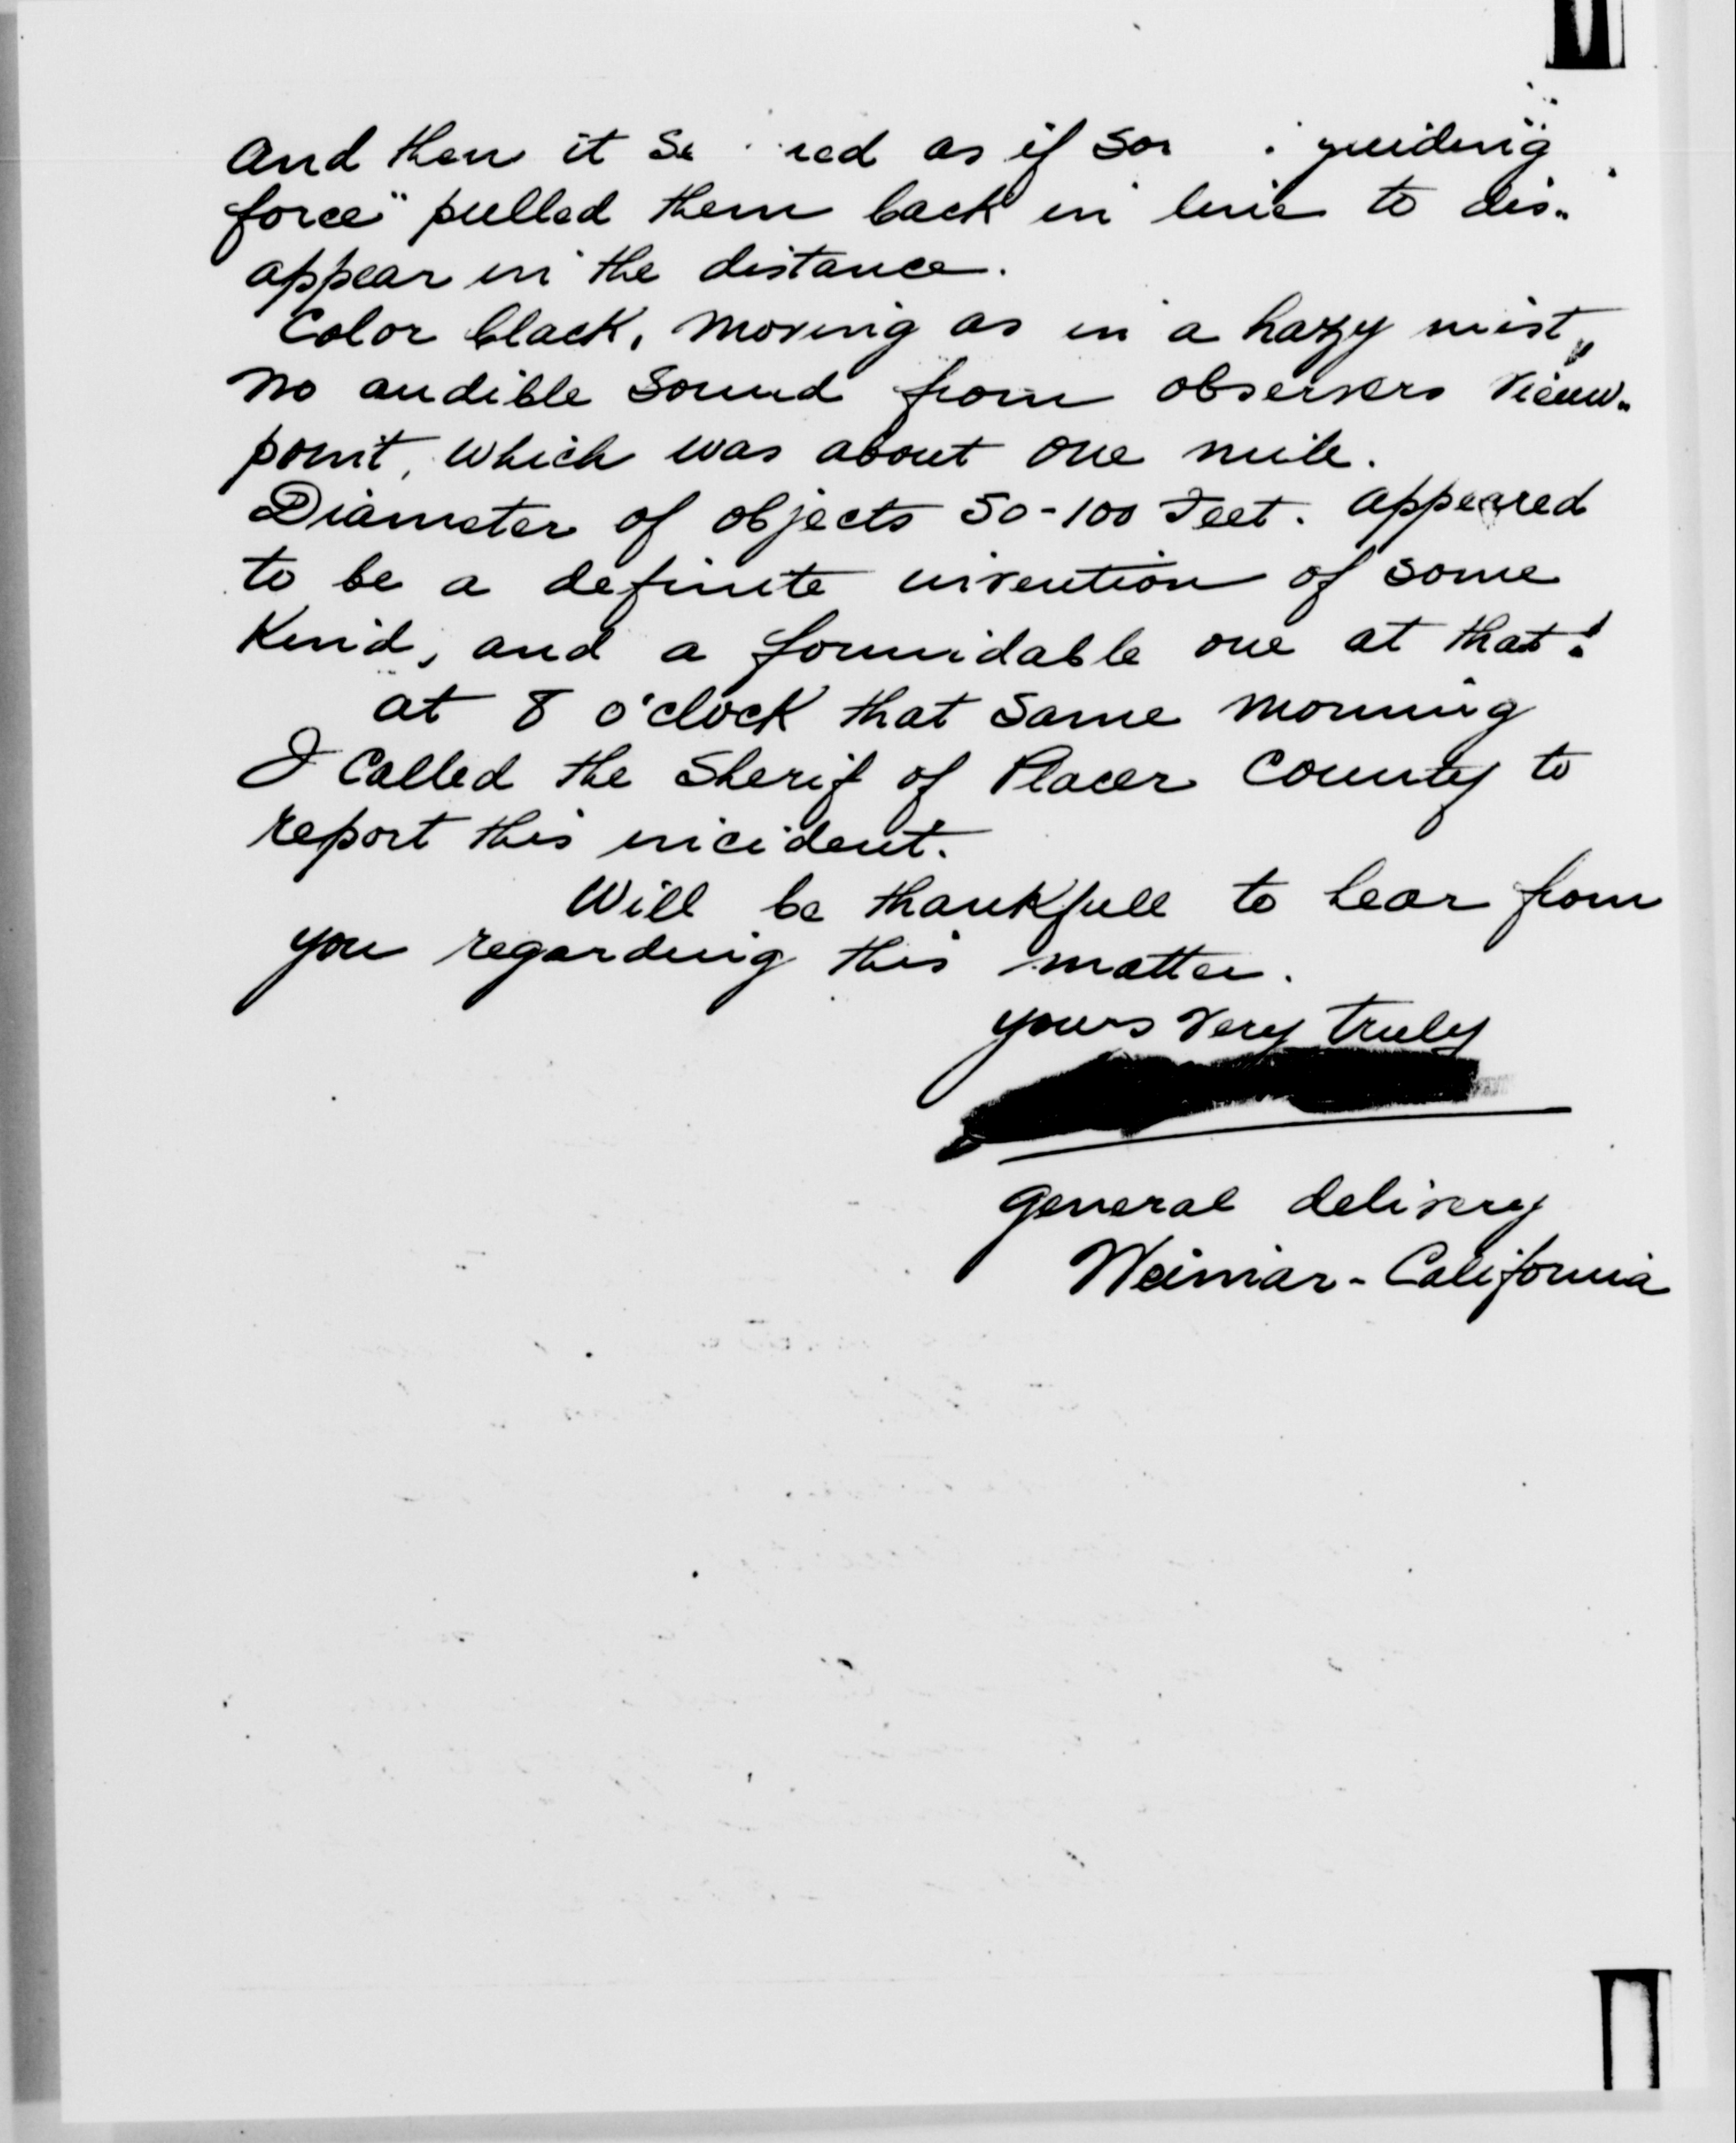 and then it as if guiding
force" pulled them back in line to dis-
appear in the distance.
Color black, moving as in a hazy mist,
no audible sound from observers view-
point, which was about one mile.
Diameter of objects 50-100 Feet. appeared
to be a definite invention of some
kind, and a formidable one at that!
at 8 o'clock that same morning
I called the Sherif of Placer County to
report this incident.
Will be thankfull to hear from
you regarding this matter.
yours very truly
general delivery
Weimar - California